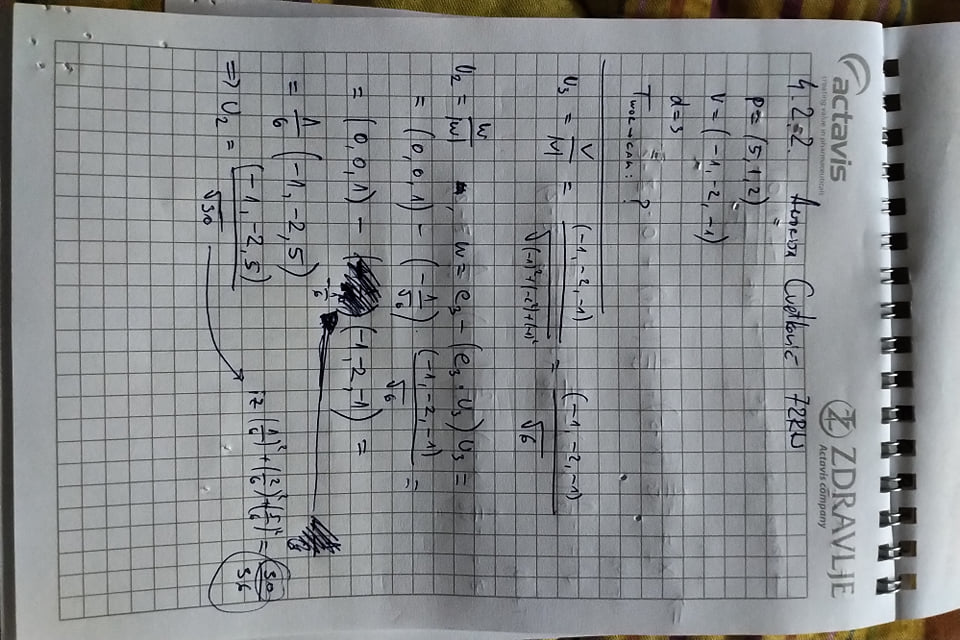 actavis
creating value in pharmaceuticals
ZDRAVLJE
Actavis company
4.2.2. Cvetković 72RN
P = (5,1,2)
V = (-1,-2,-1)
d=3
T : ?
U₃ = V/|V| = (-1,-2,-1)/√((-1)²+(-2²)+(-1)²) = (-1,-2,-1)/√6
U₂ = W/|W| , W = e₃ - (e₃·U₃)U₃ =
= (0,0,1) - (-1/√6) · (-1,-2,-1)/√6 =
= (0,0,1) - (-1,-2,-1) =
-1/6
= 1/6 (-1,-2,5)
iz (1/6)² + (2/6)² + (5/6)² = 30/36
=> U₂ = (-1,-2,5)/√30